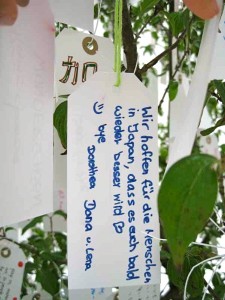 Wir hoffen für die Menschen
in Japan, dass es euch bald
wieder besser wird ♡
☺ bye
Dorothea Dana u. Lena
加